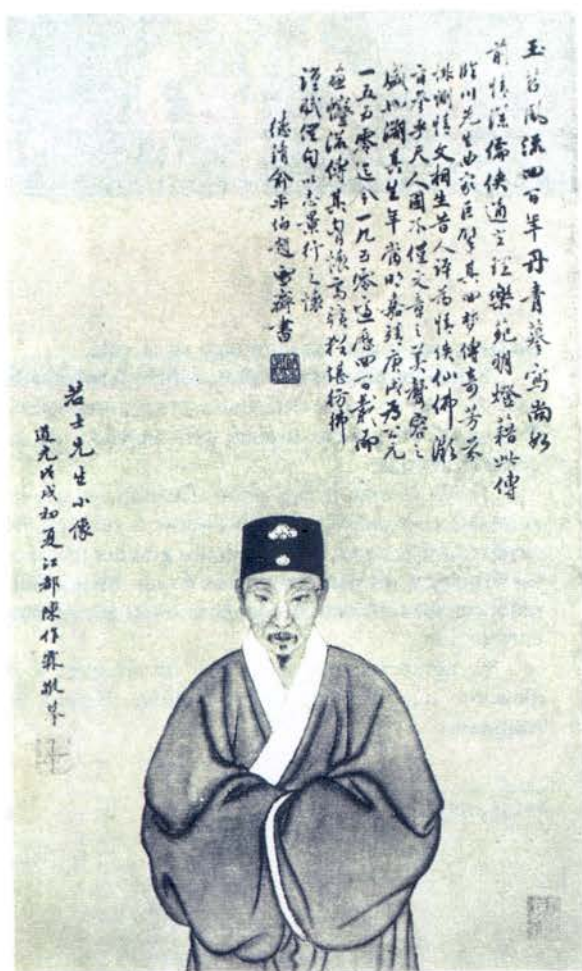 玉茗風流四百年丹青摹寫尚如
前情深儒俠通玄樂苑明燈藉此傳
臨川先生曲家巨擘其四夢傳奇芳菲
悱惻情文相生昔人評為情俠仙佛
旨參乎天人固不僅文章之美聲容之
盛也溯其生年當明嘉靖庚戌為公元
一五五零迄今一九五零適歷四百載
流傳其懷高猶堪彷彿
謹賦俚句以志景行之懷
德清俞平伯題雪齋書
若士先生小像
道光戊戌初夏江都陳作霖敬摹